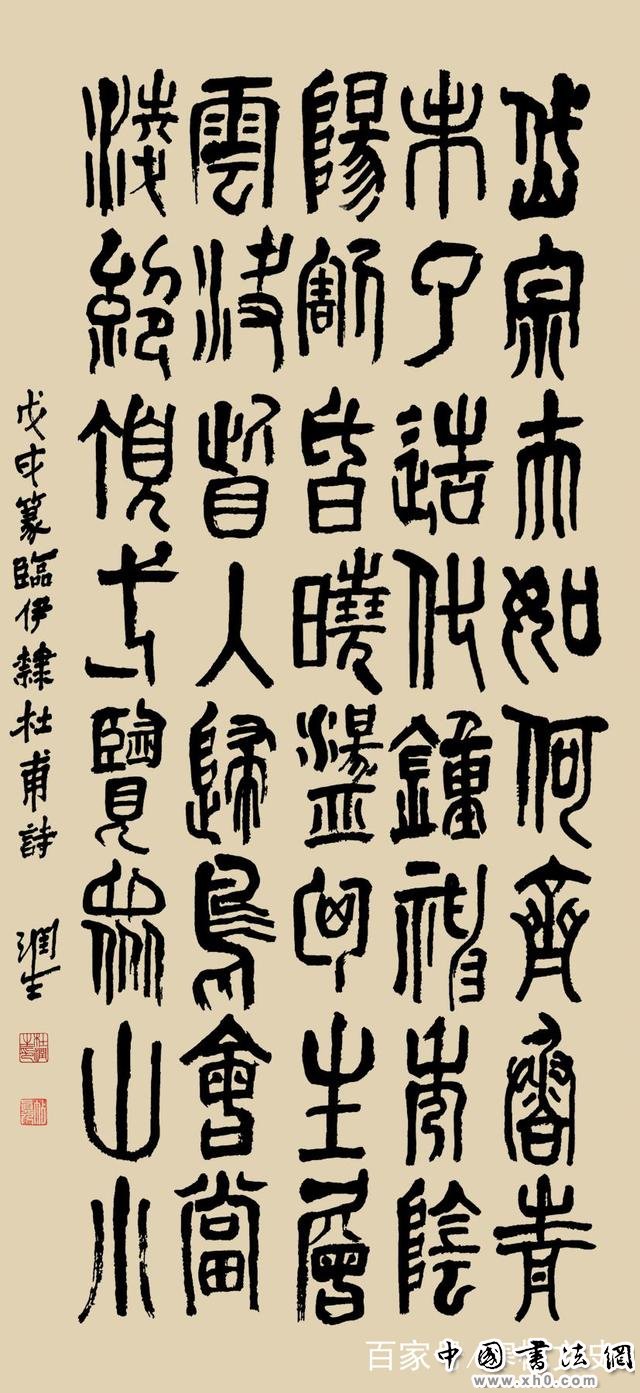 岱宗夫如何齊魯青
未了造化鍾神秀陰
陽割昏曉盪胸生層
雲決眥入歸鳥會當
淩絕頂弌覽眾山小
戊戌篆臨伊隸杜甫詩 潤生
百家号
中國書法網
www.xh0.com